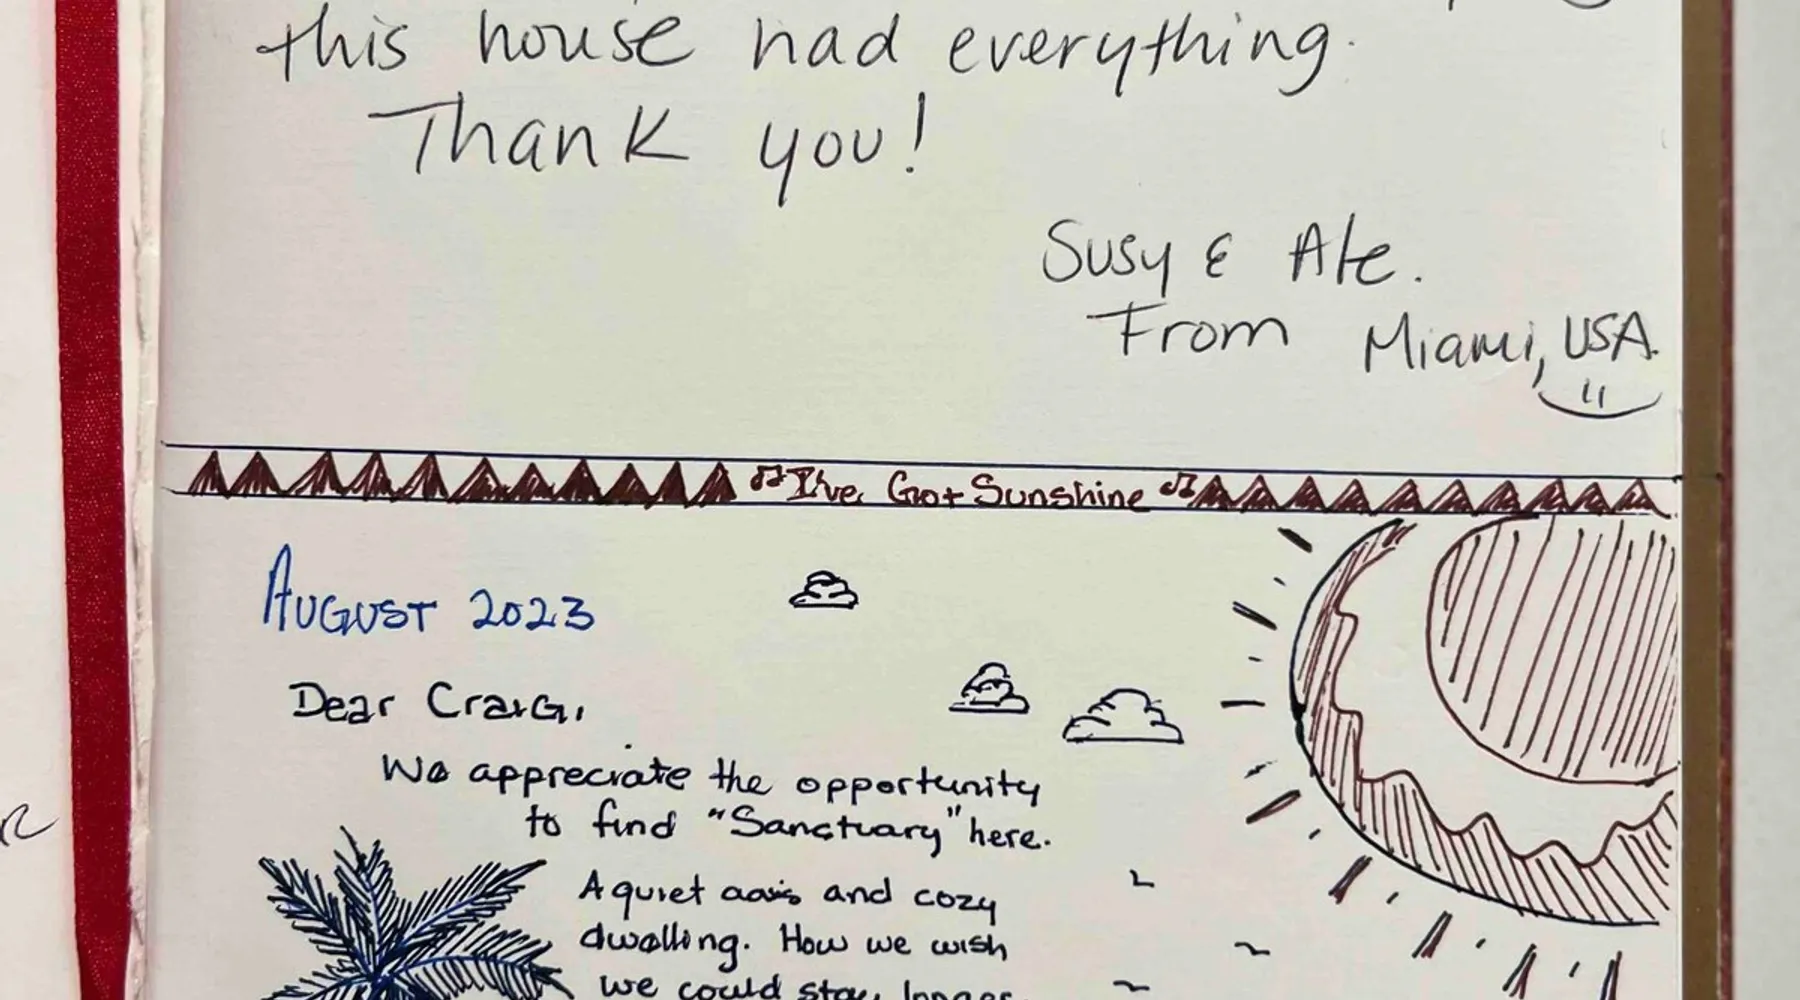 this house had everything.
Thank you!
Susy & Ale.
From Miami, USA.
I've Got Sunshine
August 2023
Dear Craig,
We appreciate the opportunity
to find "Sanctuary" here.
A quiet oasis and cozy
dwelling. How we wish
we could stay longer